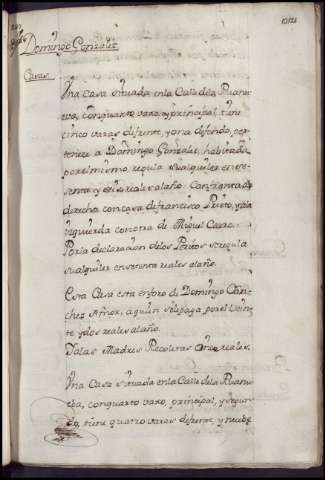 Domingo Gonzalez
Casas
Una Casa situada en la Calle de la Ruanu
eva, con quarto vaxo, y prinzipal, tiene
cinco varas de frente, y onze de fondo, per
tenece a Domingo Gonzalez, havitada
por el mismo, regula su alquiler en se
senta y seis reales al año. Confronta a la
derecha, con casa de francisco Prieto, y a la
izquierda con otra de Miguel Caero.
Por la declaracion de los Peritos se regula
su alquiler en sesenta reales al año.
Esta Casa esta en foro de Domingo San
chez Amor, a quien se le paga por el vein
te y dos reales al año.
Y a las Madres Recoletas onze reales.
Una Casa situada en la Calle de la Ruanu
eba, con quarto vaxo, prinzipal, y segun
do, tiene quatro varas de frente, y nuebe